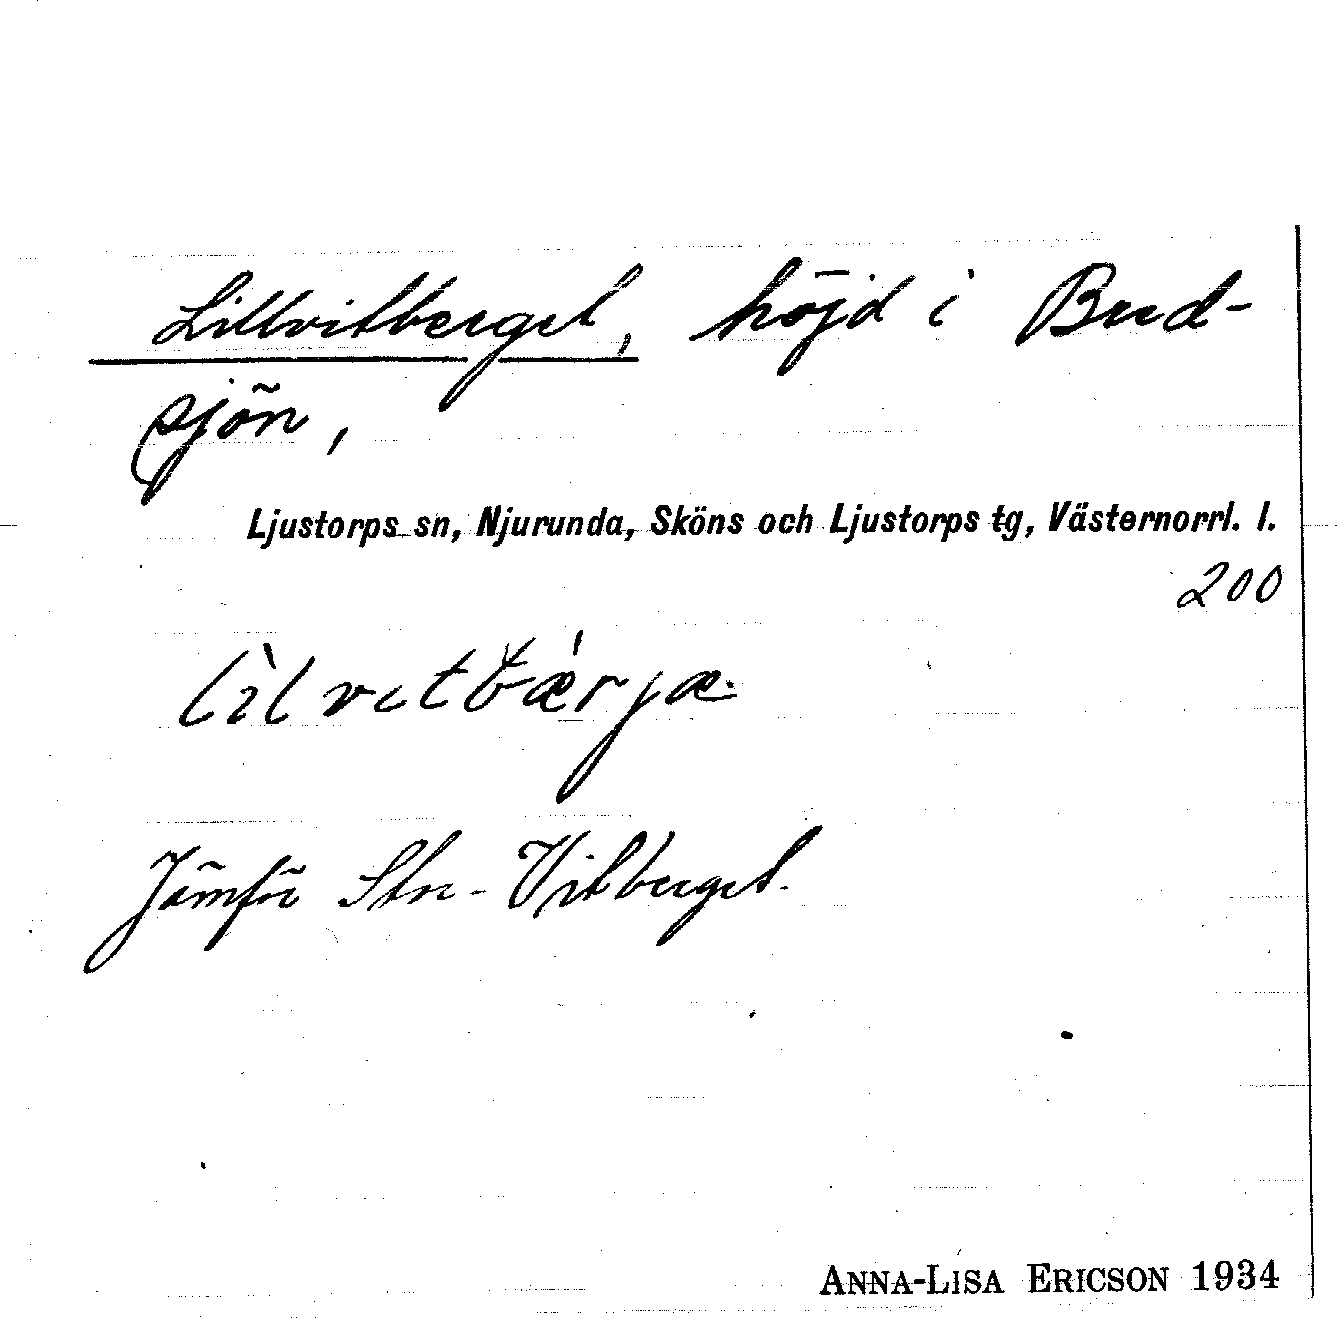 Lillvitberget, höjd i Bred-
sjön,
Ljustorps sn, Njurunda, Sköns och Ljustorps tg, Västernorrl. l.
200
Jämför Stor-Vitberget.
ANNA-LISA ERICSON 1934